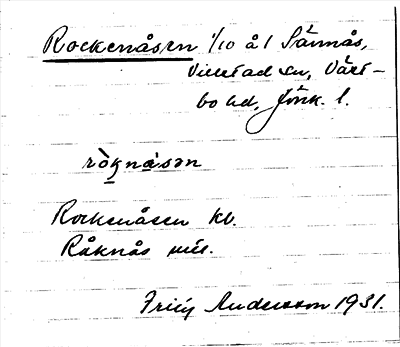 Rockenåsen 1/10 å 1 Sännås,
Villstad sn, Väst-
bo hd, Jönk. l.
ròknåsən
Rockenåsen kb.
Råknås
Andersson 1931.